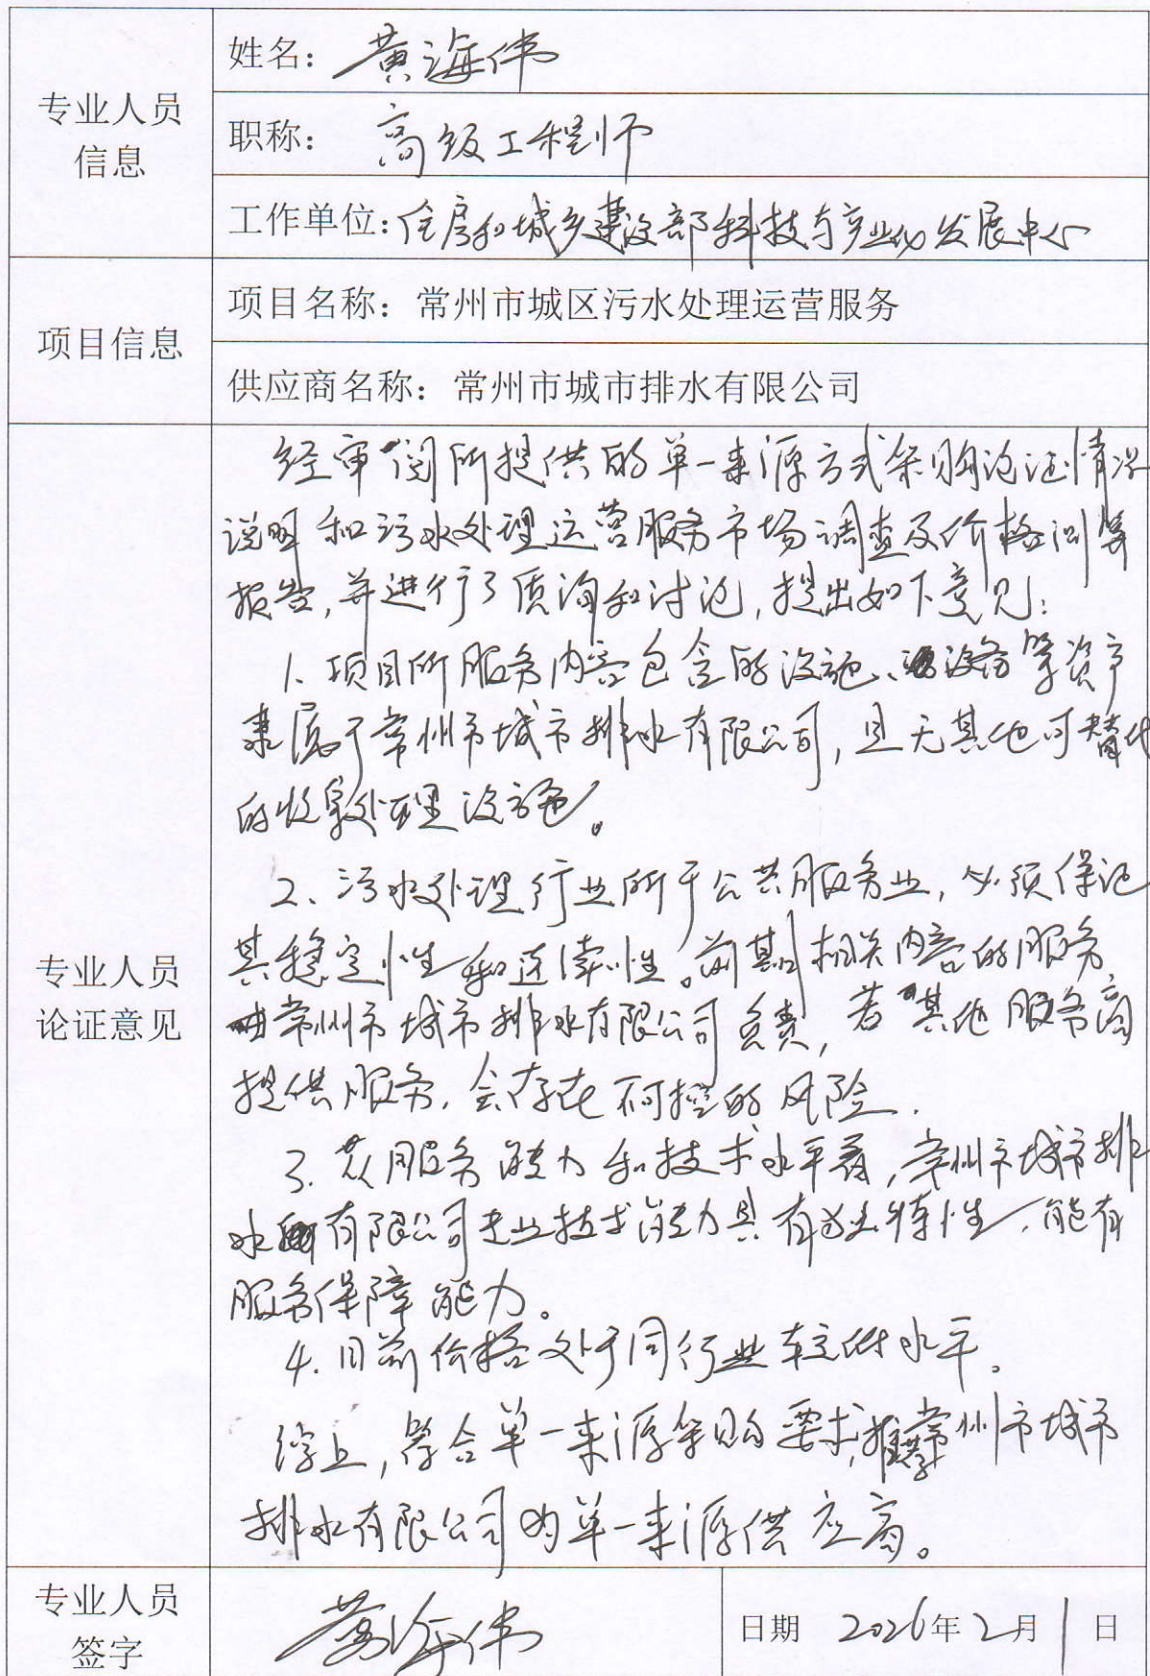 专业人员
信息
姓名：黄海伟
职称：高级工程师
工作单位：住房和城乡建设部科技与产业化发展中心
项目信息
项目名称：常州市城区污水处理运营服务
供应商名称：常州市城市排水有限公司
专业人员
论证意见
经审阅所提供的单一来源方式采购论证情况
说明和污水处理运营服务市场调查及价格测算
报告，并进行了质询和讨论，提出如下意见：
1、项目所服务内容包含的设施、设备等资产
隶属于常州市城市排水有限公司，且无其他可替代
的收集处理设施。
2、污水处理行业所于公共服务业，必须保证
其稳定性和连续性。前期相关内容的服务
由常州市城市排水有限公司负责，若其他服务商
提供服务，会存在不可控的风险．
3．从服务能力和技术水平看，常州市城市排
水有限公司专业技术能力具有独特性，能有
服务保障能力。
4．目前价格处于同行业较低水平。
综上，符合单一来源采购要求，推荐常州市城市
排水有限公司为单一来源供应商。
专业人员
签字
黄海伟
日期 2026年2月1日